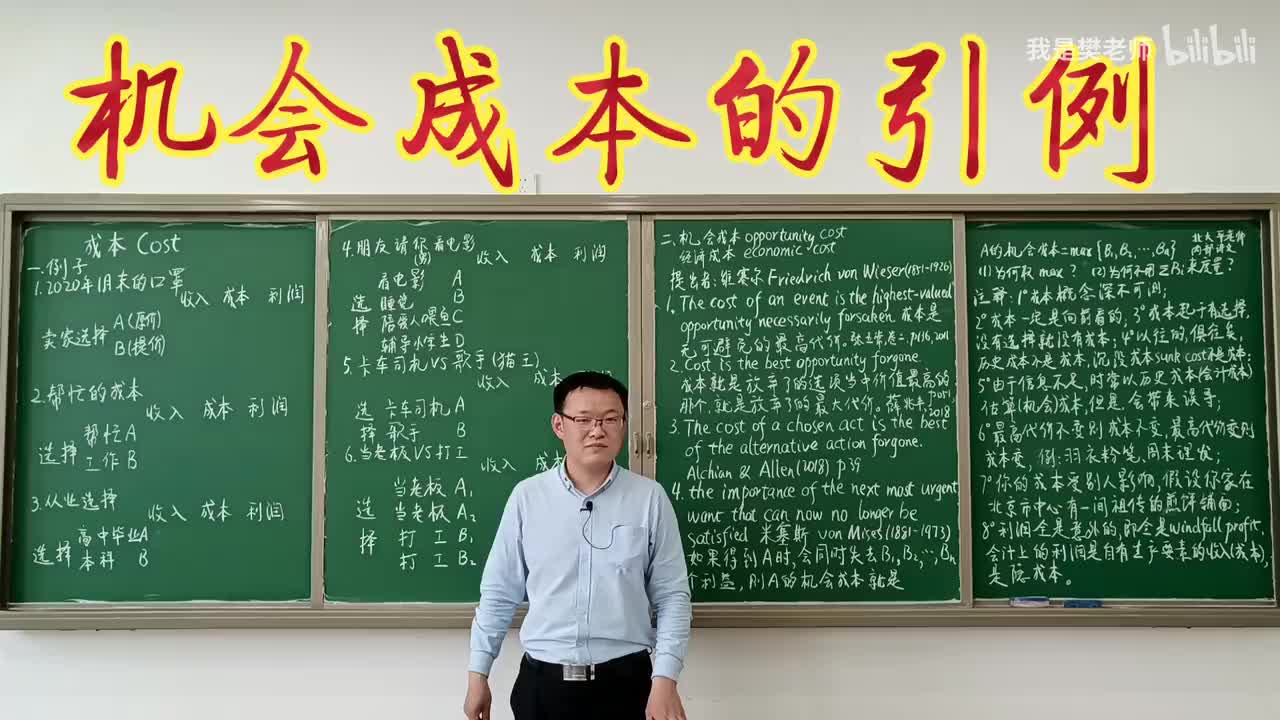 我是樊老师 bilibili
机会成本的引例
成本 Cost
一.例子
1.2020年1月末的口罩
收入 成本 利润
卖家选择 A(原价)
B(提价)
2.帮忙的成本
收入 成本 利润
帮忙A
选择 工作B
3.从业选择
收入 成本 利润
高中毕业A
选择 本科 B
4.朋友请你看电影
(男)
收入 成本 利润
看电影 A
选 睡觉 B
择 陪爱人喂鱼C
辅导小学生D
5.卡车司机VS歌手(猫王)
收入 成本
选 卡车司机 A
择 歌手 B
6.当老板VS打工
收入 成本
当老板 A₁
选 当老板 A₂
择 打工 B₁
打工 B₂
二.机会成本 opportunity cost
经济成本 economic cost
提出者:维塞尔 Friedrich von Wieser(1851-1926)
1.The cost of an event is the highest-valued
opportunity necessarily forsaken.成本是
无可避免的最高代价.张五常,卷二,p116,2011
2.Cost is the best opportunity forgone.
成本就是放弃了的选项当中价值最高的
那个,就是放弃了的最大代价.薛兆丰,p071,
2018
3.The cost of a chosen act is the best
of the alternative action forgone.
Alchian & Allen(2018) p39
4.the importance of the next most urgent
want that can now no longer be
satisfied 米塞斯 von Mises(1881-1973)
如果得到A时,会同时失去B₁,B₂,…,Bn
个利益,则A的机会成本就是
A的机会成本=max{B₁,B₂,…,Bn}
(1)为何取max? (2)为何不用ΣBi来度量?
注释:1°成本概念深不可测;
2°成本一定是向前看的,3°成本起于有选择,
没有选择就没有成本;4°以往的,俱往矣,
历史成本不是成本,沉没成本sunk cost不是成本;
5°由于信息不足,时常以历史成本(会计成本)
估算(机会)成本,但是,会带来误导;
6°最高代价不变则成本不变,最高代价变则
成本变,例:羽衣粉笔、周末理发;
7°你的成本受别人影响,假设你家在
北京市中心有一间祖传的煎饼铺面;
8°利润全是意外的,即全是windfall profit,
会计上的利润是自有生产要素的收入(成本),
是隐成本。